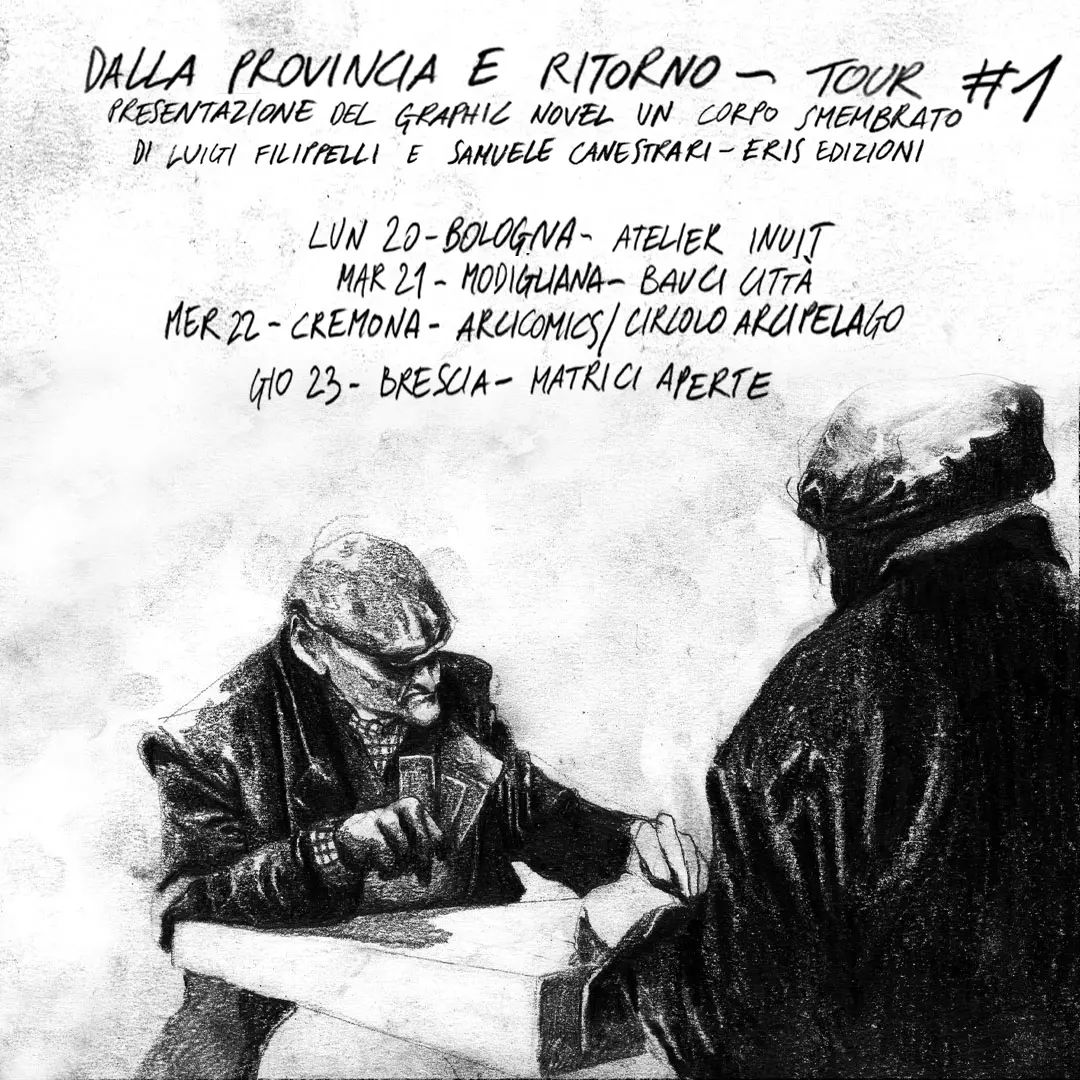 DALLA PROVINCIA E RITORNO – TOUR #1
PRESENTAZIONE DEL GRAPHIC NOVEL UN CORPO SMEMBRATO
DI LUIGI FILIPPELLI E SAMUELE CANESTRARI – ERIS EDIZIONI
LUN 20 - BOLOGNA - ATELIER INUIT
MAR 21 - MODIGLIANA - BAUCI CITTÀ
MER 22 - CREMONA - ARCICOMICS / CIRCOLO ARCIPELAGO
GIO 23 - BRESCIA - MATRICI APERTE